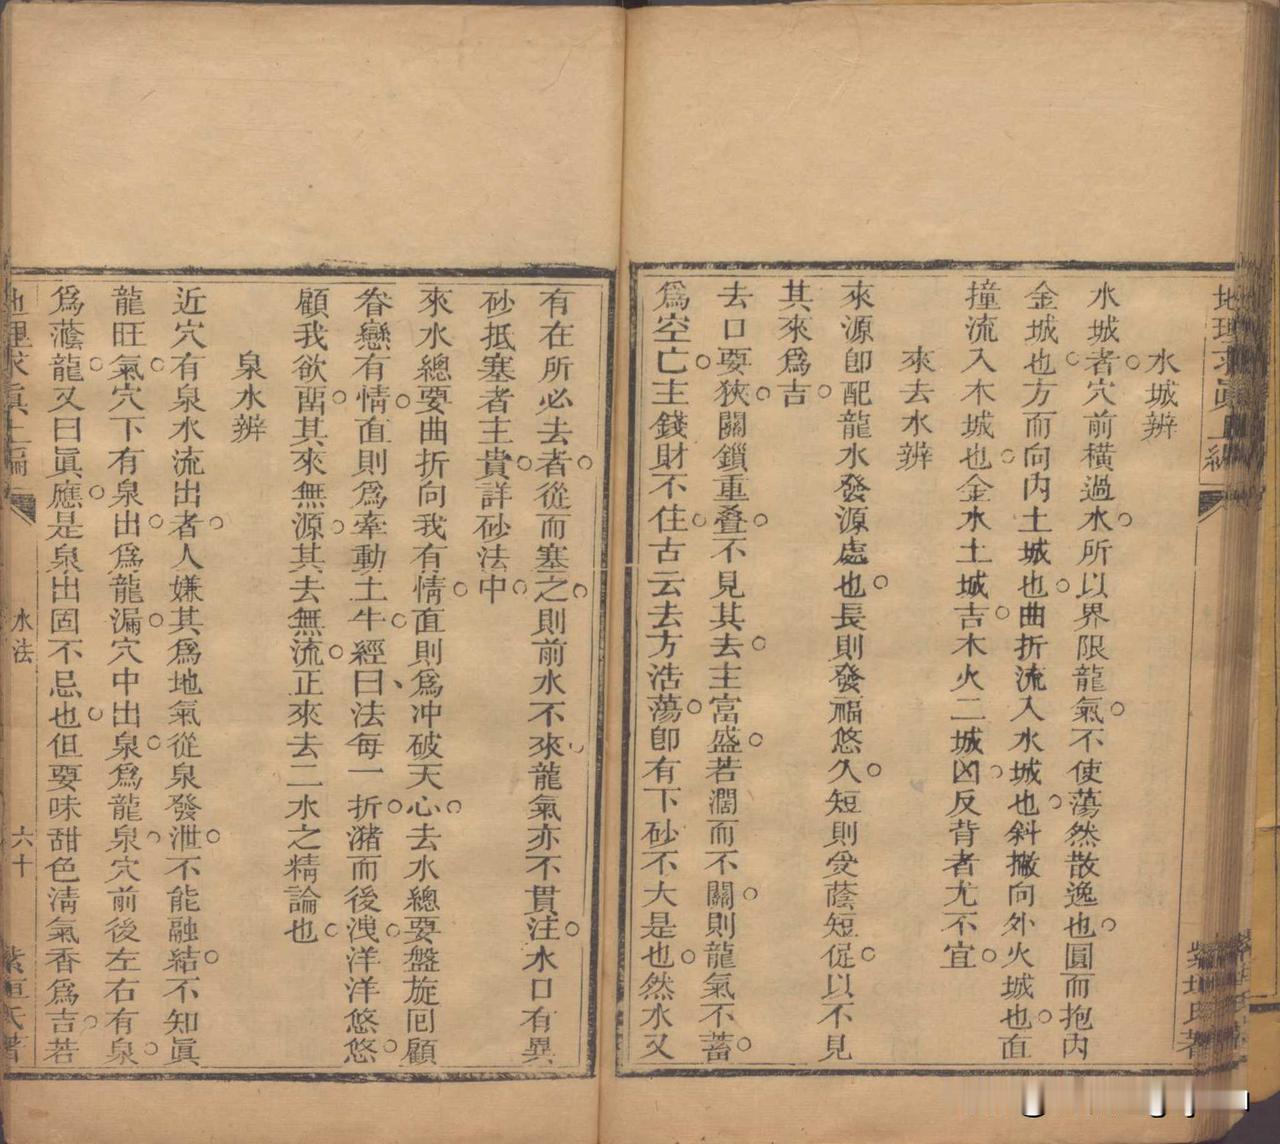 水城辨
水城者穴前橫過水所以界限龍氣不使蕩然散逸也圓而抱內
金城也方而向內土城也曲折流入水城也斜撇向外火城也直
撞流入木城也金水土城吉木火二城凶反背者尤不宜
來去水辨
來源卽配龍水發源處也長則發福悠久短則受蔭短促以不見
其來爲吉
去口要狹關鎖重叠不見其去主富盛若濶而不關則龍氣不蓄
爲空亡主錢財不住古云去方浩蕩卽有下砂不大是也然水又
有在所必去者從而塞之則前水不來龍氣亦不貫注水口有異
砂抵塞者主貴詳砂法中
來水總要曲折向我有情直則爲冲破天心去水總要盤旋囘顧
眷戀有情直則爲牽動土牛經曰法每一折瀦而後洩洋洋悠悠
顧我欲畱其來無源其去無流正來去二水之精論也
泉水辨
近穴有泉水流出者人嫌其爲地氣從泉發泄不能融結不知眞
龍旺氣穴下有泉出爲龍漏穴中出泉爲龍泉穴前後左右有泉
爲蔭龍又曰眞應是泉出固不忌也但要味甜色淸氣香爲吉若
水法
六十